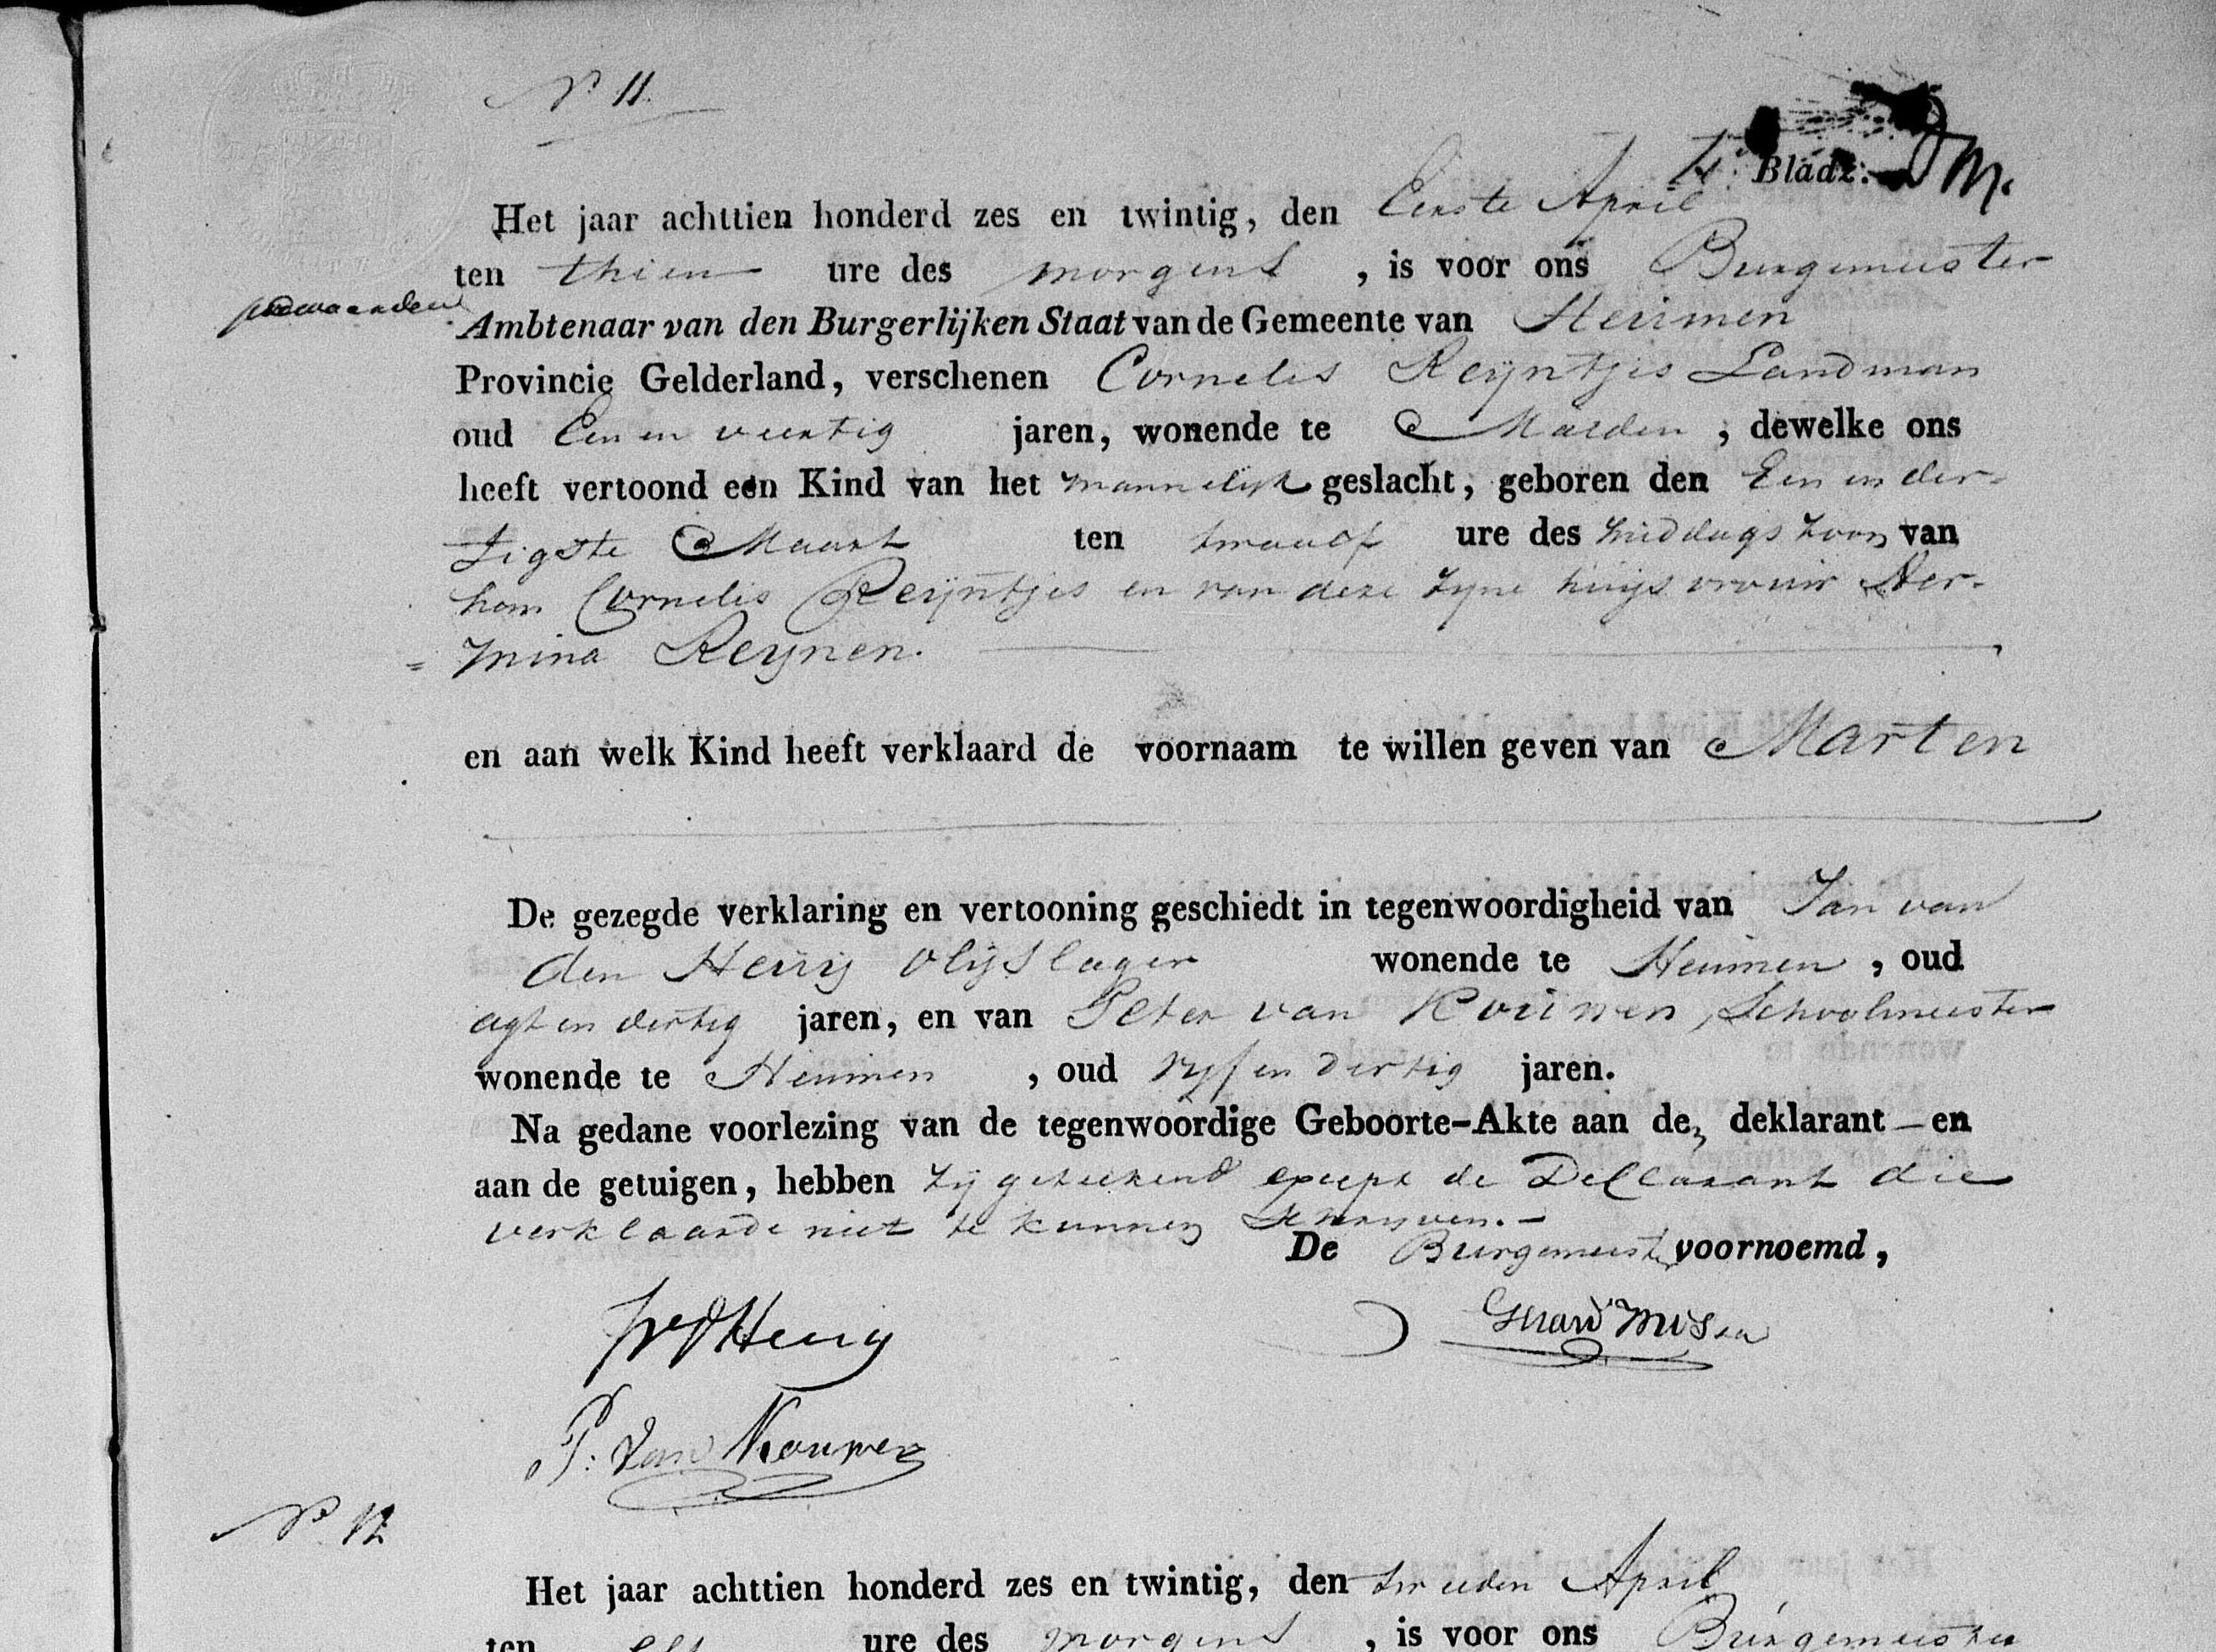 N° 11.
4e Bladz:
Het jaar achttien honderd zes en twintig, den Eerste April
ten thien ure des morgens , is voor ons Burgemeester
Ambtenaar van den Burgerlijken Staat van de Gemeente van Heumen
Provincie Gelderland, verschenen Cornelis Reijntjes Landman
oud Een en veertig jaren, wonende te Malden , dewelke ons
heeft vertoond een Kind van het mannelijk geslacht, geboren den Een en der-
tigste Maart ten twaalf ure des middags zoon van
hem Cornelis Reijntjes en van deze zyne huijsvrouw Her-
= mina Reynen.
en aan welk Kind heeft verklaard de voornaam te willen geven van Marten
De gezegde verklaring en vertooning geschiedt in tegenwoordigheid van Jan van
den Heuij olijslager wonende te Heumen , oud
agt en dertig jaren, en van Peter van Kouwen, Schoolmeester
wonende te Heumen , oud vyf en dertig jaren.
Na gedane voorlezing van de tegenwoordige Geboorte-Akte aan de deklarant — en
aan de getuigen, hebben zij geteekend except de Declarant die
verklaarde niet te kunnen Schryven. —
De Burgemeester voornoemd,
P. Van Kouwen
N° 12
Het jaar achttien honderd zes en twintig, den tweeden April
ten elf ure des morgens , is voor ons Burgemeester